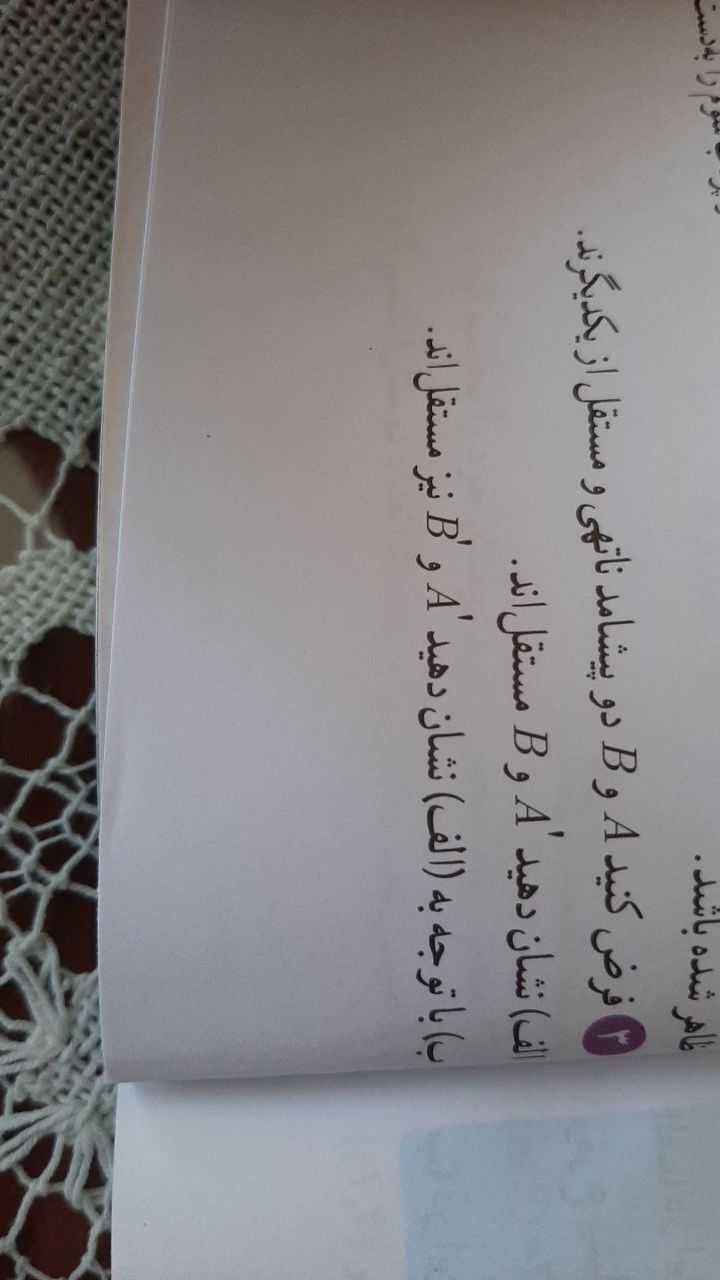 را به‌دست
ظاهر شده باشد.
۳ فرض کنید A و B دو پیشامد ناتهی و مستقل از یکدیگرند.
الف) نشان دهید A' و B مستقل‌اند.
ب) با توجه به (الف) نشان دهید A' و B' نیز مستقل‌اند.